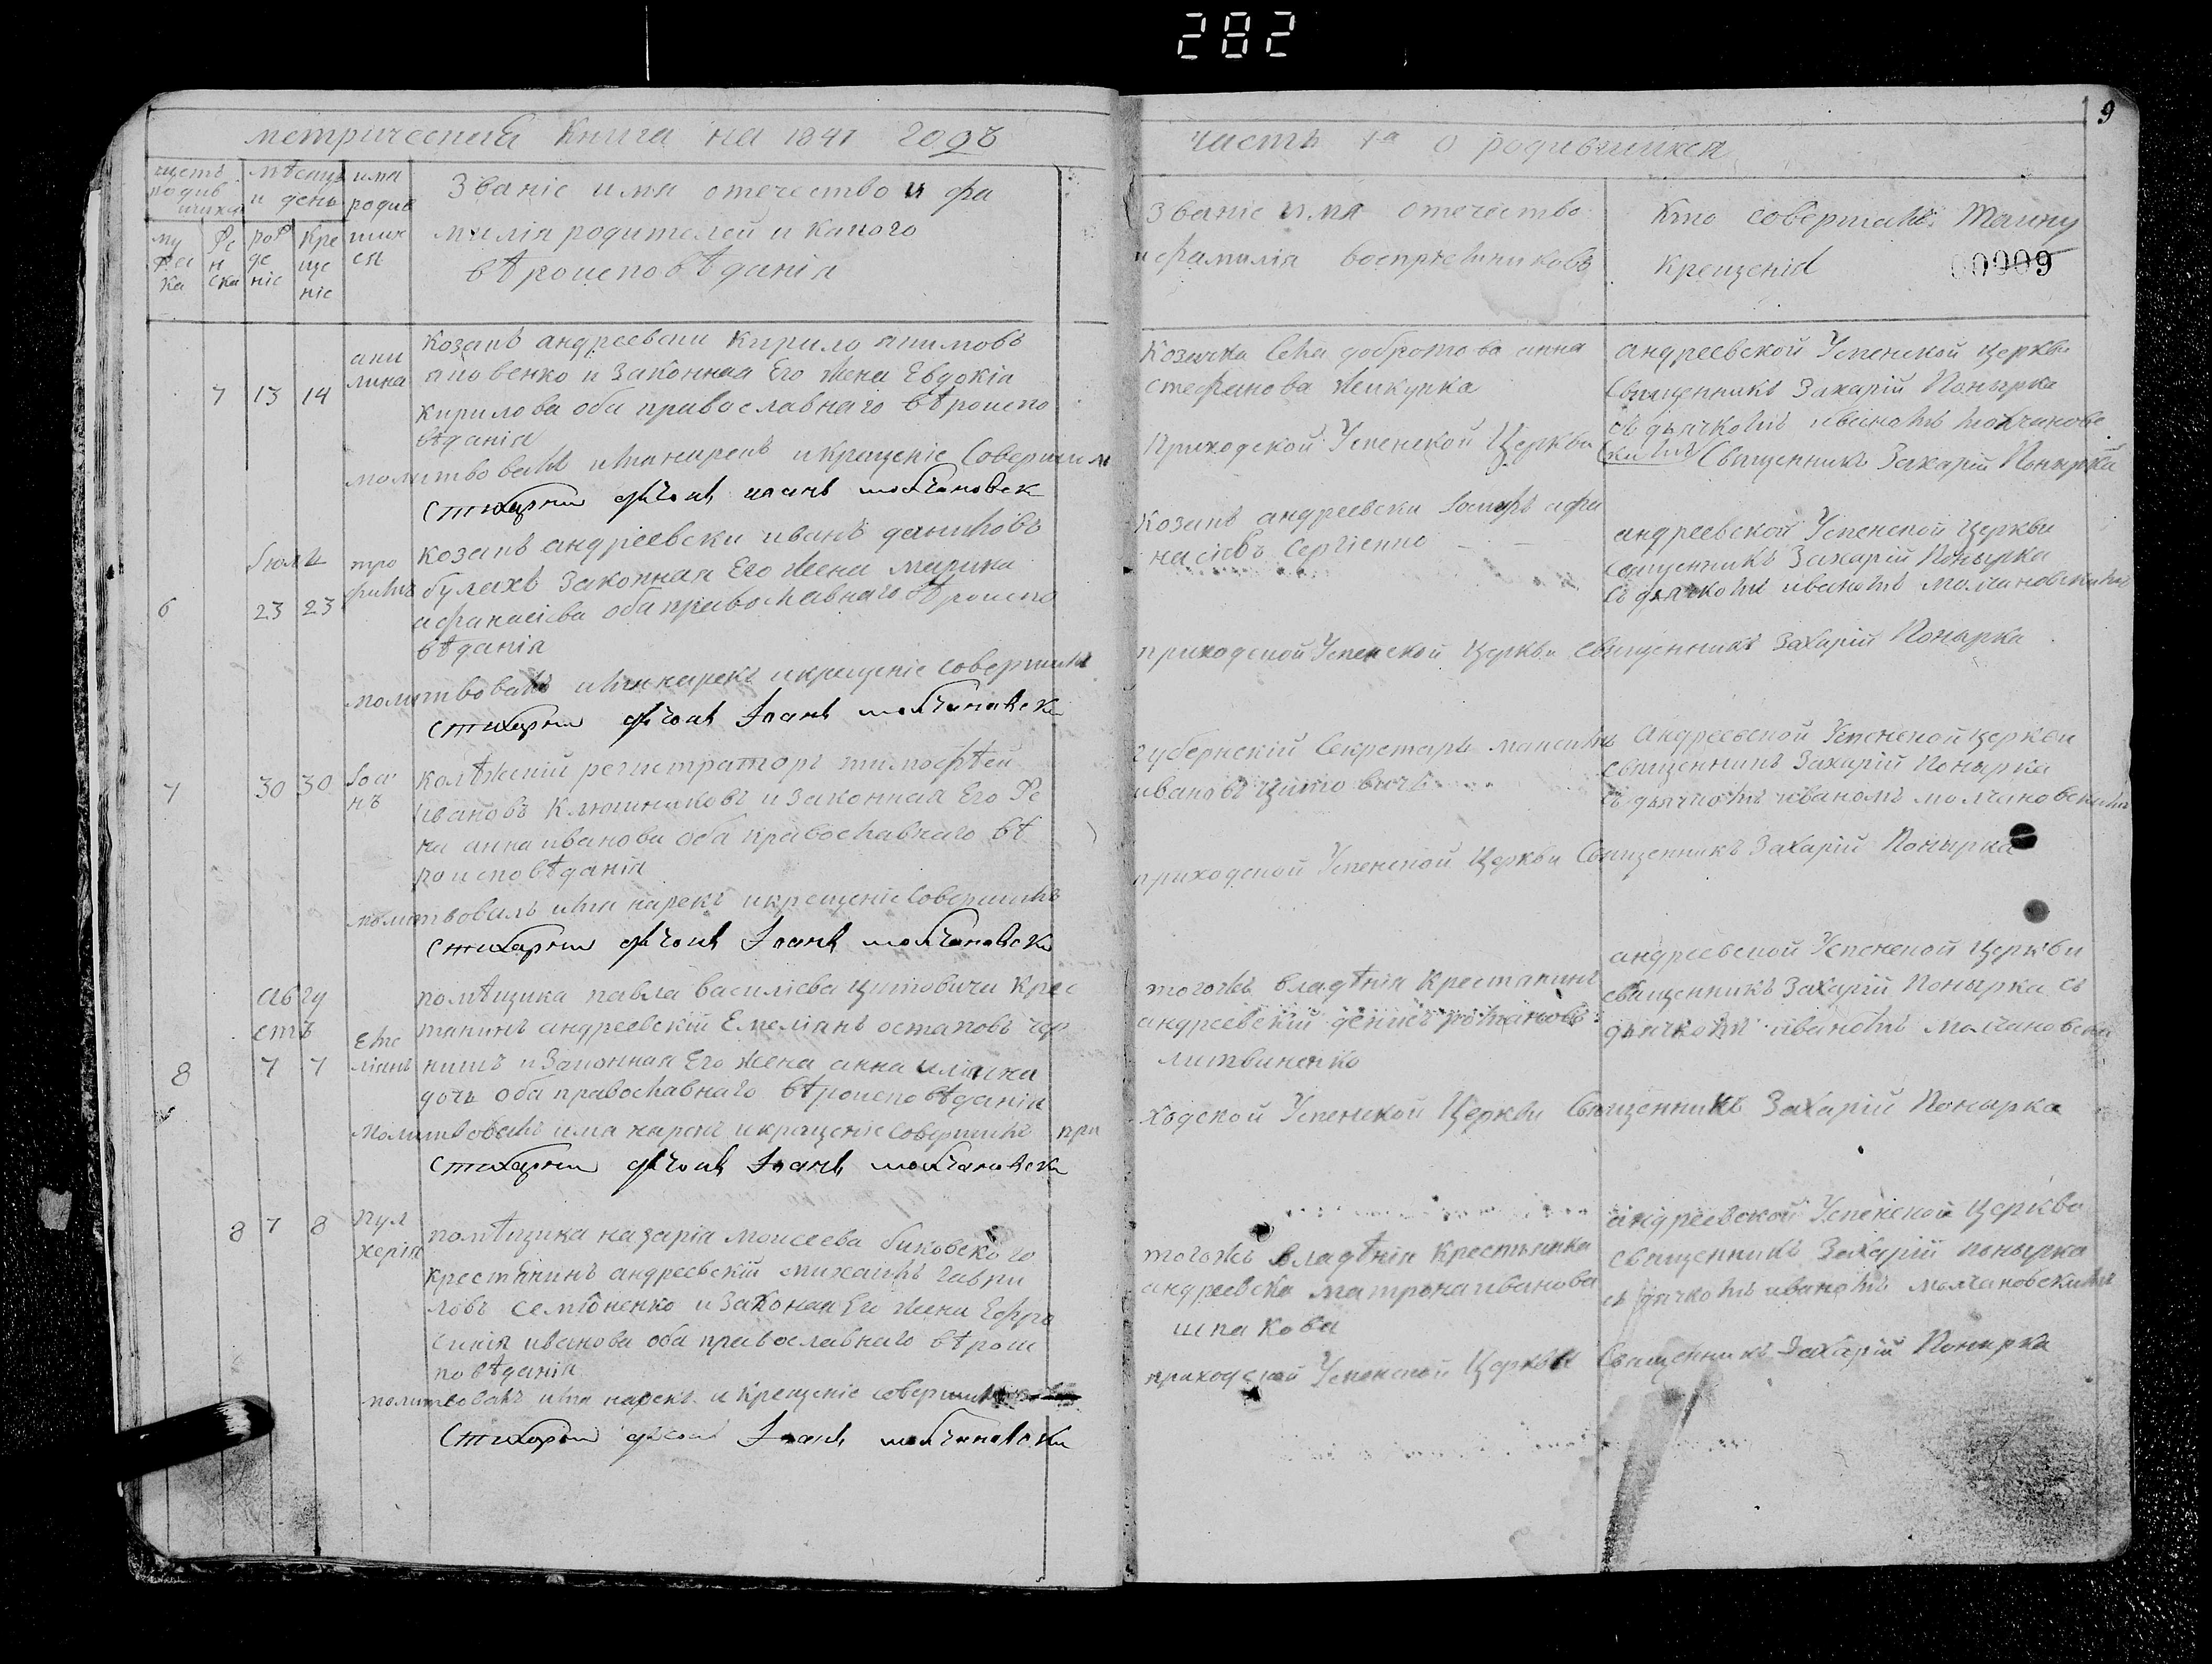 282
9
метрическая книга на 1841 годъ
часть 1а о родившихся
щетъ родив шихся
мѣсяцъ и день
има родив шихся
Званіе имя отечество и фа
милія родителей и какого
вѣроисповѣданія
му жеска
же н ска
рож де ніе
Кре ще ніе
Званіе имя отечество
и фамилія воспрѣемниковъ
Кто совершалъ Таину
Крещенія
00909
7 13 14
аки лина
козакъ андреевски Кирило якимовъ
яковенко и Законная Его жена Евдокіа
кирилова оба православнаго вѣроиспо
вѣданія
молитвовалъ имя нарекъ и крещеніе Совершилъ
стихарни дячокъ иоанъ молчановск
Козачка Села добротова анна
стефанова
Приходской Успенской Церкви
андреевской Успенской церкви
Священникъ Захарій Понырка
съ дьячкомъ иваномъ молчановс
кимъ Священникъ Захарій Понырка
Июля
6 23 23
тро фимъ
козакъ андреевски иванъ даниловъ
булахъ Законная Его жена марина
афанасіева оба православнаго вѣроиспо
вѣданія
молитвовалъ имя нарекъ и крещеніе совершилъ
стихарни дячокъ Iоанъ молчановски
Козакъ андреевски афа
насіевъ Сергіенко
приходской Успенской Церкви Священникъ Захарій Понырка
андреевской Успенской Церкви
священникъ Захарій Понырка
съ дячкомъ иваномъ молчановскимъ
7 30 30
Iоа нъ
колѣжскій регистраторъ тимофѣй
ивановъ Ключниковъ и законная Его Же
на анна иванова оба православнаго вѣ
роисповѣданія
молитвовалъ имя нарекъ и крещеніе Совершилъ
стихарни дячокъ Iоанъ молчановски
губернскій Секретарь максимъ
ивановъ Цитовичъ
приходской Успенской Церкви Священникъ Захарій Понырка
Андреевской Успенской церкви
священникъ Захарій Понырка
съ дьячкомъ иваномъ молчановскимъ
Авгу
стъ
8 7 7
Еме ліянъ
помѣщика павла василіева Цитовича Крес
тянинъ андреевскій Емеліанъ остаповъ
и Законная Его жена анна
дочь оба православнаго вѣроисповѣданія
Молитвовалъ имя нарекъ и крещеніе Совершилъ при
стихарни дячокъ Iоанъ молчановски
тогожъ владѣнія Крестянинъ
андреевскій денисъ романовъ
литвиненко
ходской Успенской Церкви Священникъ Захарій Понырка
андреевской Успенской Церкви
священникъ Захарій Понырка съ
дьячкомъ иваномъ молчановски
8 7 8
пул херія
помѣщика назарія моисеева биковского
крестянинъ андреевскій михаилъ гаври
ловъ семіоненко и Законая Ег жена Ефро
синія иванова оба православнаго вѣроис
повѣданія
молитвовалъ имя нарекъ и Крещеніе совершилъ
Стихарни дячокъ Iоанъ молчановски
тогожъ владѣнія Крестьянка
андреевска матрона иванова
шпакова
приходской Успенской Церкви Священникъ Захарій Понырка
андреевской Успенской Церкви
священникъ Захарій понырка
съ дячкомъ иваномъ молчановскимъ